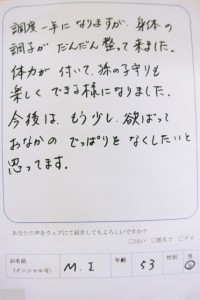 調度一年になりますが、身体の
調子が だんだん 整って来ました。
体力が 付いて、孫の子守りも
楽しく できる様になりました。
今後は、もう少し、欲ばって
おなかの でっぱりを なくしたいと
思ってます。
あなたの声をウェブにて紹介してもよろしいですか?
□はい □匿名で □ダメ
お名前 M. I 年齢 53 性別 男
(イニシャル可)